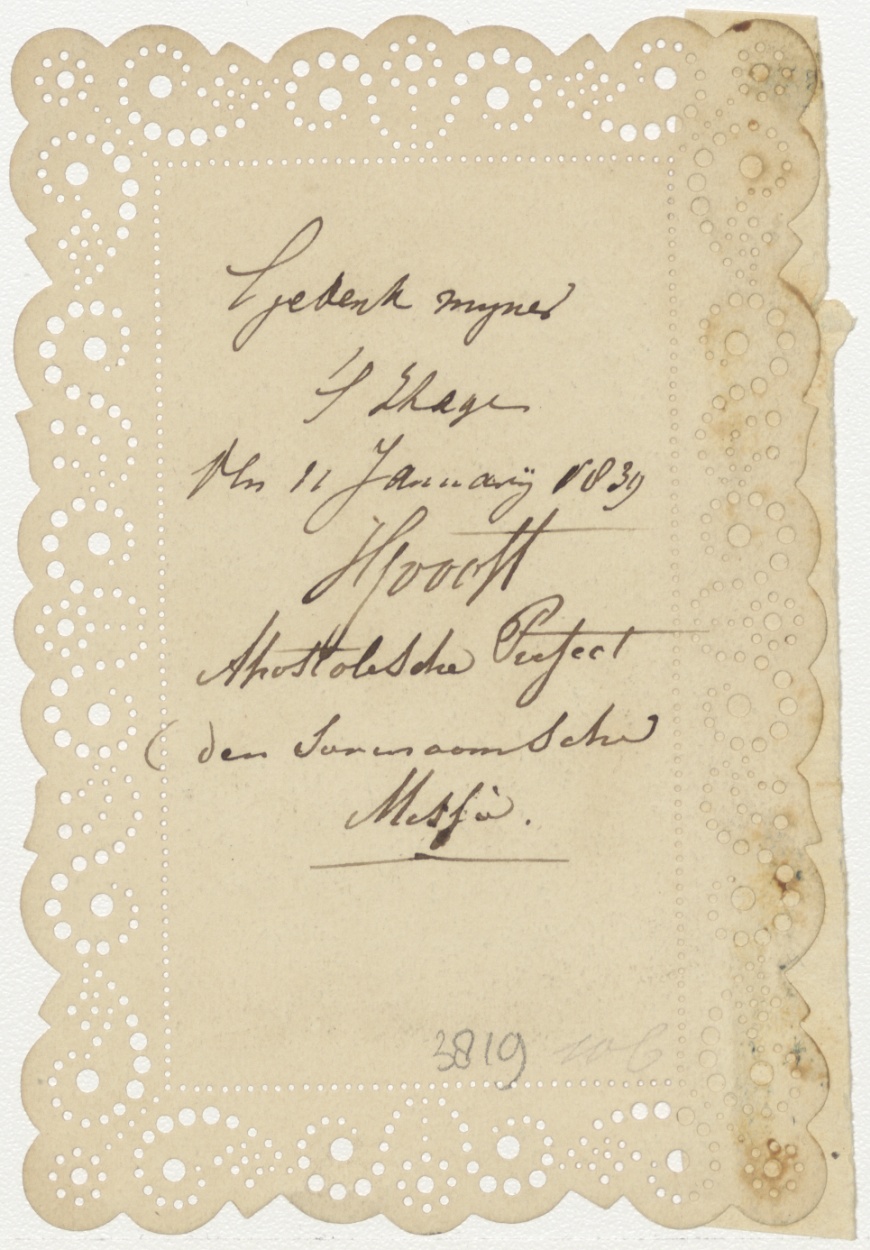 Gedenk mynes
'S Ehage
den 11 Januarij 1839
JGrooff
Apostolesche Prefect
(den Surinaamsche
Messie.
3819